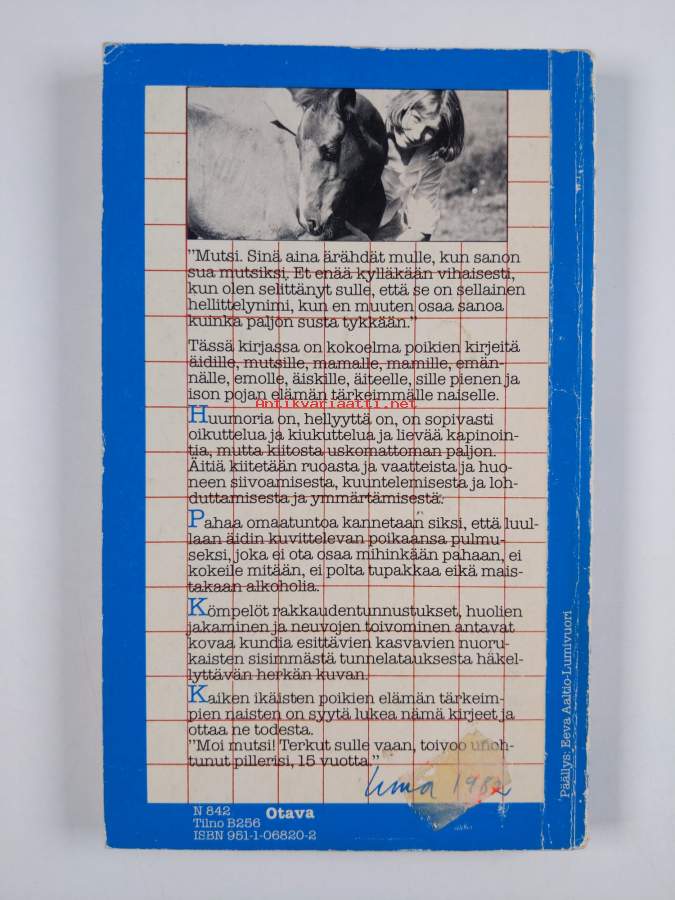 "Mutsi. Sinä aina ärähdät mulle, kun sanon
sua mutsiksi. Et enää kylläkään vihaisesti,
kun olen selittänyt sulle, että se on sellainen
hellittelynimi, kun en muuten osaa sanoa
kuinka paljon susta tykkään."
Tässä kirjassa on kokoelma poikien kirjeitä
äidille, mutsille, mamalle, mamille, emän-
nälle, emolle, äiskille, äiteelle, sille pienen ja
ison pojan elämän tärkeimmälle naiselle.
Antikvariaatti.net
Huumoria on, hellyyttä on, on sopivasti
oikuttelua ja kiukuttelua ja lievää kapinoin-
tia, mutta kiitosta uskomattoman paljon.
Äitiä kiitetään ruoasta ja vaatteista ja huo-
neen siivoamisesta, kuuntelemisesta ja loh-
duttamisesta ja ymmärtämisestä.
Pahaa omaatuntoa kannetaan siksi, että luul-
laan äidin kuvittelevan poikaansa pulmu-
seksi, joka ei ota osaa mihinkään pahaan, ei
kokeile mitään, ei polta tupakkaa eikä mais-
takaan alkoholia.
Kömpelöt rakkaudentunnustukset, huolien
jakaminen ja neuvojen toivominen antavat
kovaa kundia esittävien kasvavien nuoru-
kaisten sisimmästä tunnelatauksesta häkel-
lyttävän herkän kuvan.
Kaiken ikäisten poikien elämän tärkeim-
pien naisten on syytä lukea nämä kirjeet ja
ottaa ne todesta.
"Moi mutsi! Terkut sulle vaan, toivoo unoh-
tunut pillerisi, 15 vuotta."
N 842
Otava
Tilno B256
ISBN 951-1-06820-2
Päällys: Eeva Aaltio-Lumivuori